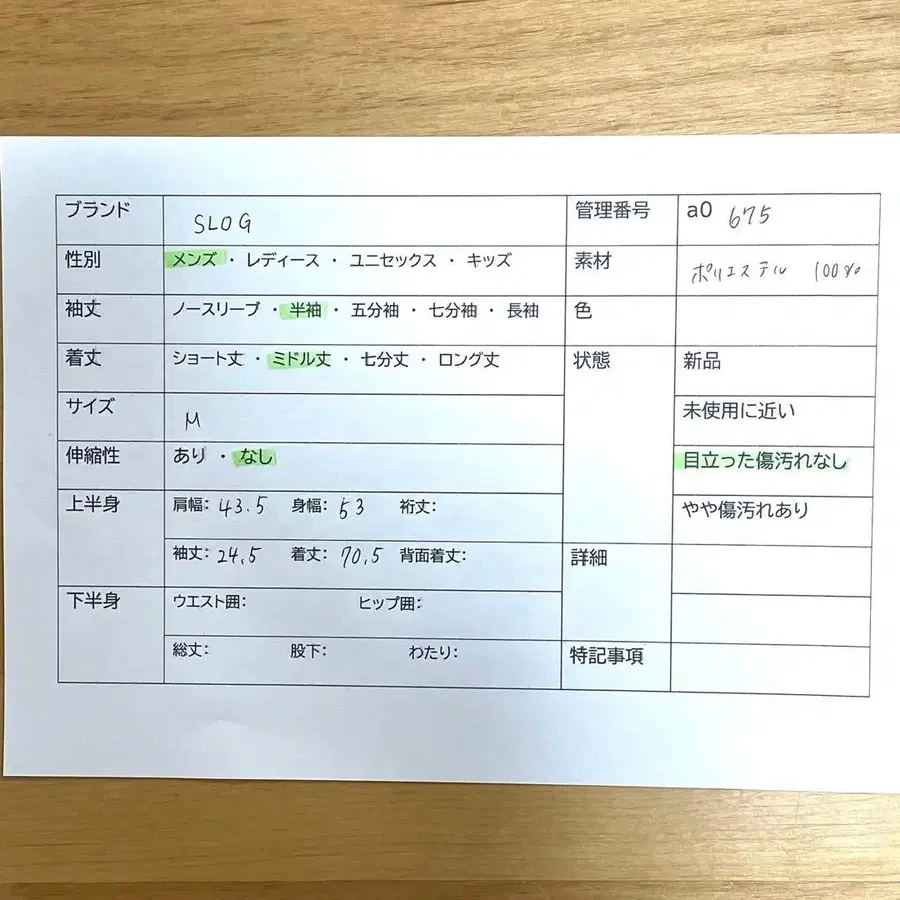 ブランド SLOG 管理番号 a0 675
性別 メンズ ・ レディース ・ ユニセックス ・ キッズ 素材 ポリエステル 100%
袖丈 ノースリーブ ・ 半袖 ・ 五分袖 ・ 七分袖 ・ 長袖 色
着丈 ショート丈 ・ ミドル丈 ・ 七分丈 ・ ロング丈 状態 新品
サイズ M 未使用に近い
伸縮性 あり ・ なし 目立った傷汚れなし
上半身 肩幅: 43.5 身幅: 53 裄丈: やや傷汚れあり
袖丈: 24.5 着丈: 70.5 背面着丈: 詳細
下半身 ウエスト囲: ヒップ囲:
総丈: 股下: わたり: 特記事項